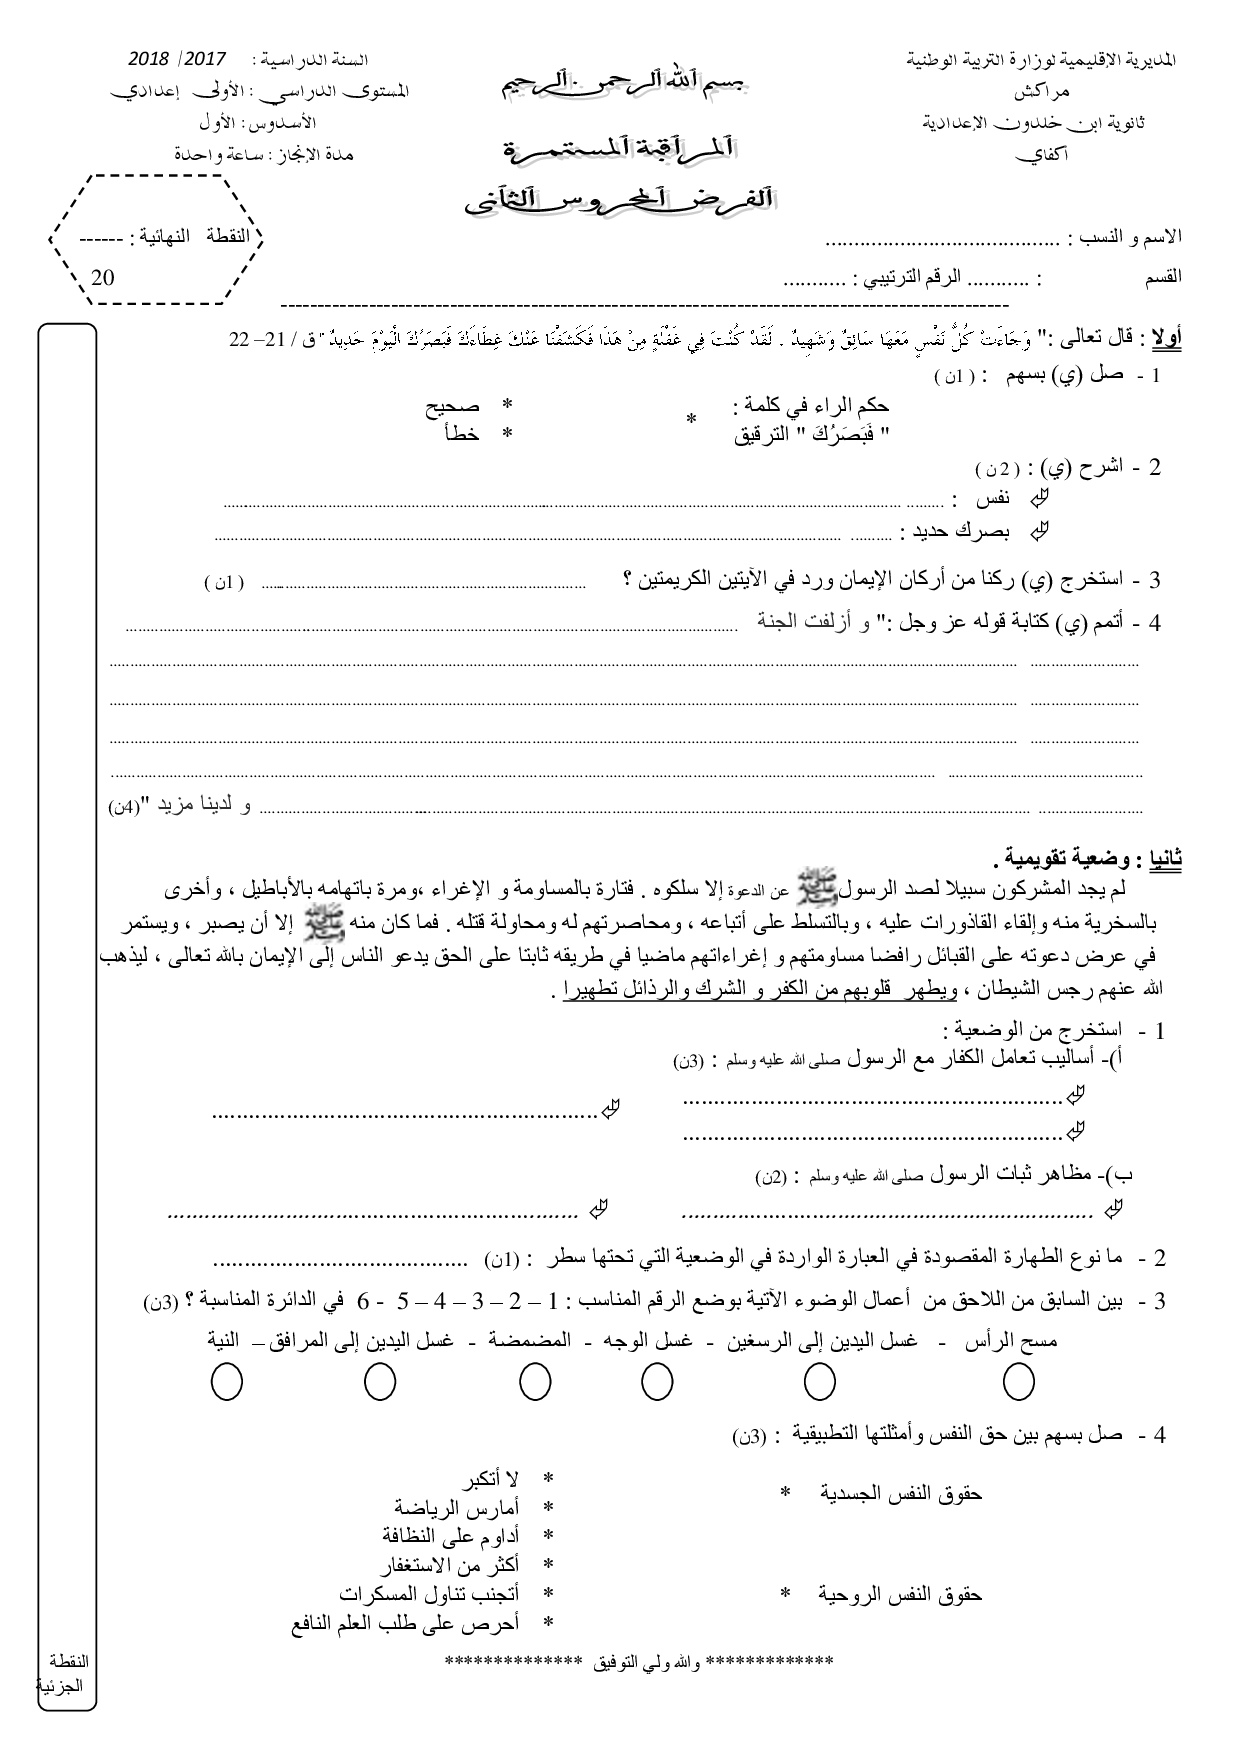 المديرية الإقليمية لوزارة التربية الوطنية
مراكش
ثانوية ابن خلدون الإعدادية
اكفاي
بسم الله الرحمن الرحيم
المراقبة المستمرة
الفرض المحروس الثاني
السنة الدراسية : 2017/ 2018
المستوى الدراسي : الأولى إعدادي
الأسدوس : الأول
مدة الإنجاز : ساعة واحدة
النقطة النهائية : ------
20
الاسم و النسب : .........................................
القسم : ........... الرقم الترتيبي : ...........
أولا : قال تعالى :" وَجَاءَتْ كُلُّ نَفْسٍ مَعَهَا سَائِقٌ وَشَهِيدٌ . لَقَدْ كُنْتَ فِي غَفْلَةٍ مِنْ هَذَا فَكَشَفْنَا عَنْكَ غِطَاءَكَ فَبَصَرُكَ الْيَوْمَ حَدِيدٌ " ق / 21– 22
1 - صل (ي) بسهم : ( 1ن )
حكم الراء في كلمة : * صحيح
" فَبَصَرُكَ " الترقيق * * خطأ
2 - اشرح (ي) : ( 2 ن )
نفس : ........................................
بصرك حديد : ........................................
3 - استخرج (ي) ركنا من أركان الإيمان ورد في الآيتين الكريمتين ؟ ........................................ ( 1ن )
4 - أتمم (ي) كتابة قوله عز وجل :" و أزلفت الجنة ........................................
........................................
........................................
........................................
........................................
........................................ و لدينا مزيد "(4ن)
ثانيا : وضعية تقويمية .
لم يجد المشركون سبيلا لصد الرسول ﷺ عن الدعوة إلا سلكوه . فتارة بالمساومة و الإغراء ،ومرة باتهامه بالأباطيل ، وأخرى
بالسخرية منه وإلقاء القاذورات عليه ، وبالتسلط على أتباعه ، ومحاصرتهم له ومحاولة قتله . فما كان منه ﷺ إلا أن يصبر ، ويستمر
في عرض دعوته على القبائل رافضا مساومتهم و إغراءاتهم ماضيا في طريقه ثابتا على الحق يدعو الناس إلى الإيمان بالله تعالى ، ليذهب
الله عنهم رجس الشيطان ، ويطهر قلوبهم من الكفر و الشرك والرذائل تطهيرا .
1 - استخرج من الوضعية :
أ)- أساليب تعامل الكفار مع الرسول صلى الله عليه وسلم : (3ن)
........................................ ........................................
........................................
ب)- مظاهر ثبات الرسول صلى الله عليه وسلم : (2ن)
........................................ ........................................
2 - ما نوع الطهارة المقصودة في العبارة الواردة في الوضعية التي تحتها سطر : (1ن) ........................................
3 - بين السابق من اللاحق من أعمال الوضوء الآتية بوضع الرقم المناسب : 1 – 2 – 3 – 4 – 5 - 6 في الدائرة المناسبة ؟ (3ن)
مسح الرأس - غسل اليدين إلى الرسغين - غسل الوجه - المضمضة - غسل اليدين إلى المرافق – النية
4 - صل بسهم بين حق النفس وأمثلتها التطبيقية : (3ن)
حقوق النفس الجسدية *
حقوق النفس الروحية *
* لا أتكبر
* أمارس الرياضة
* أداوم على النظافة
* أكثر من الاستغفار
* أتجنب تناول المسكرات
* أحرص على طلب العلم النافع
************* والله ولي التوفيق **************
النقطة
الجزئية